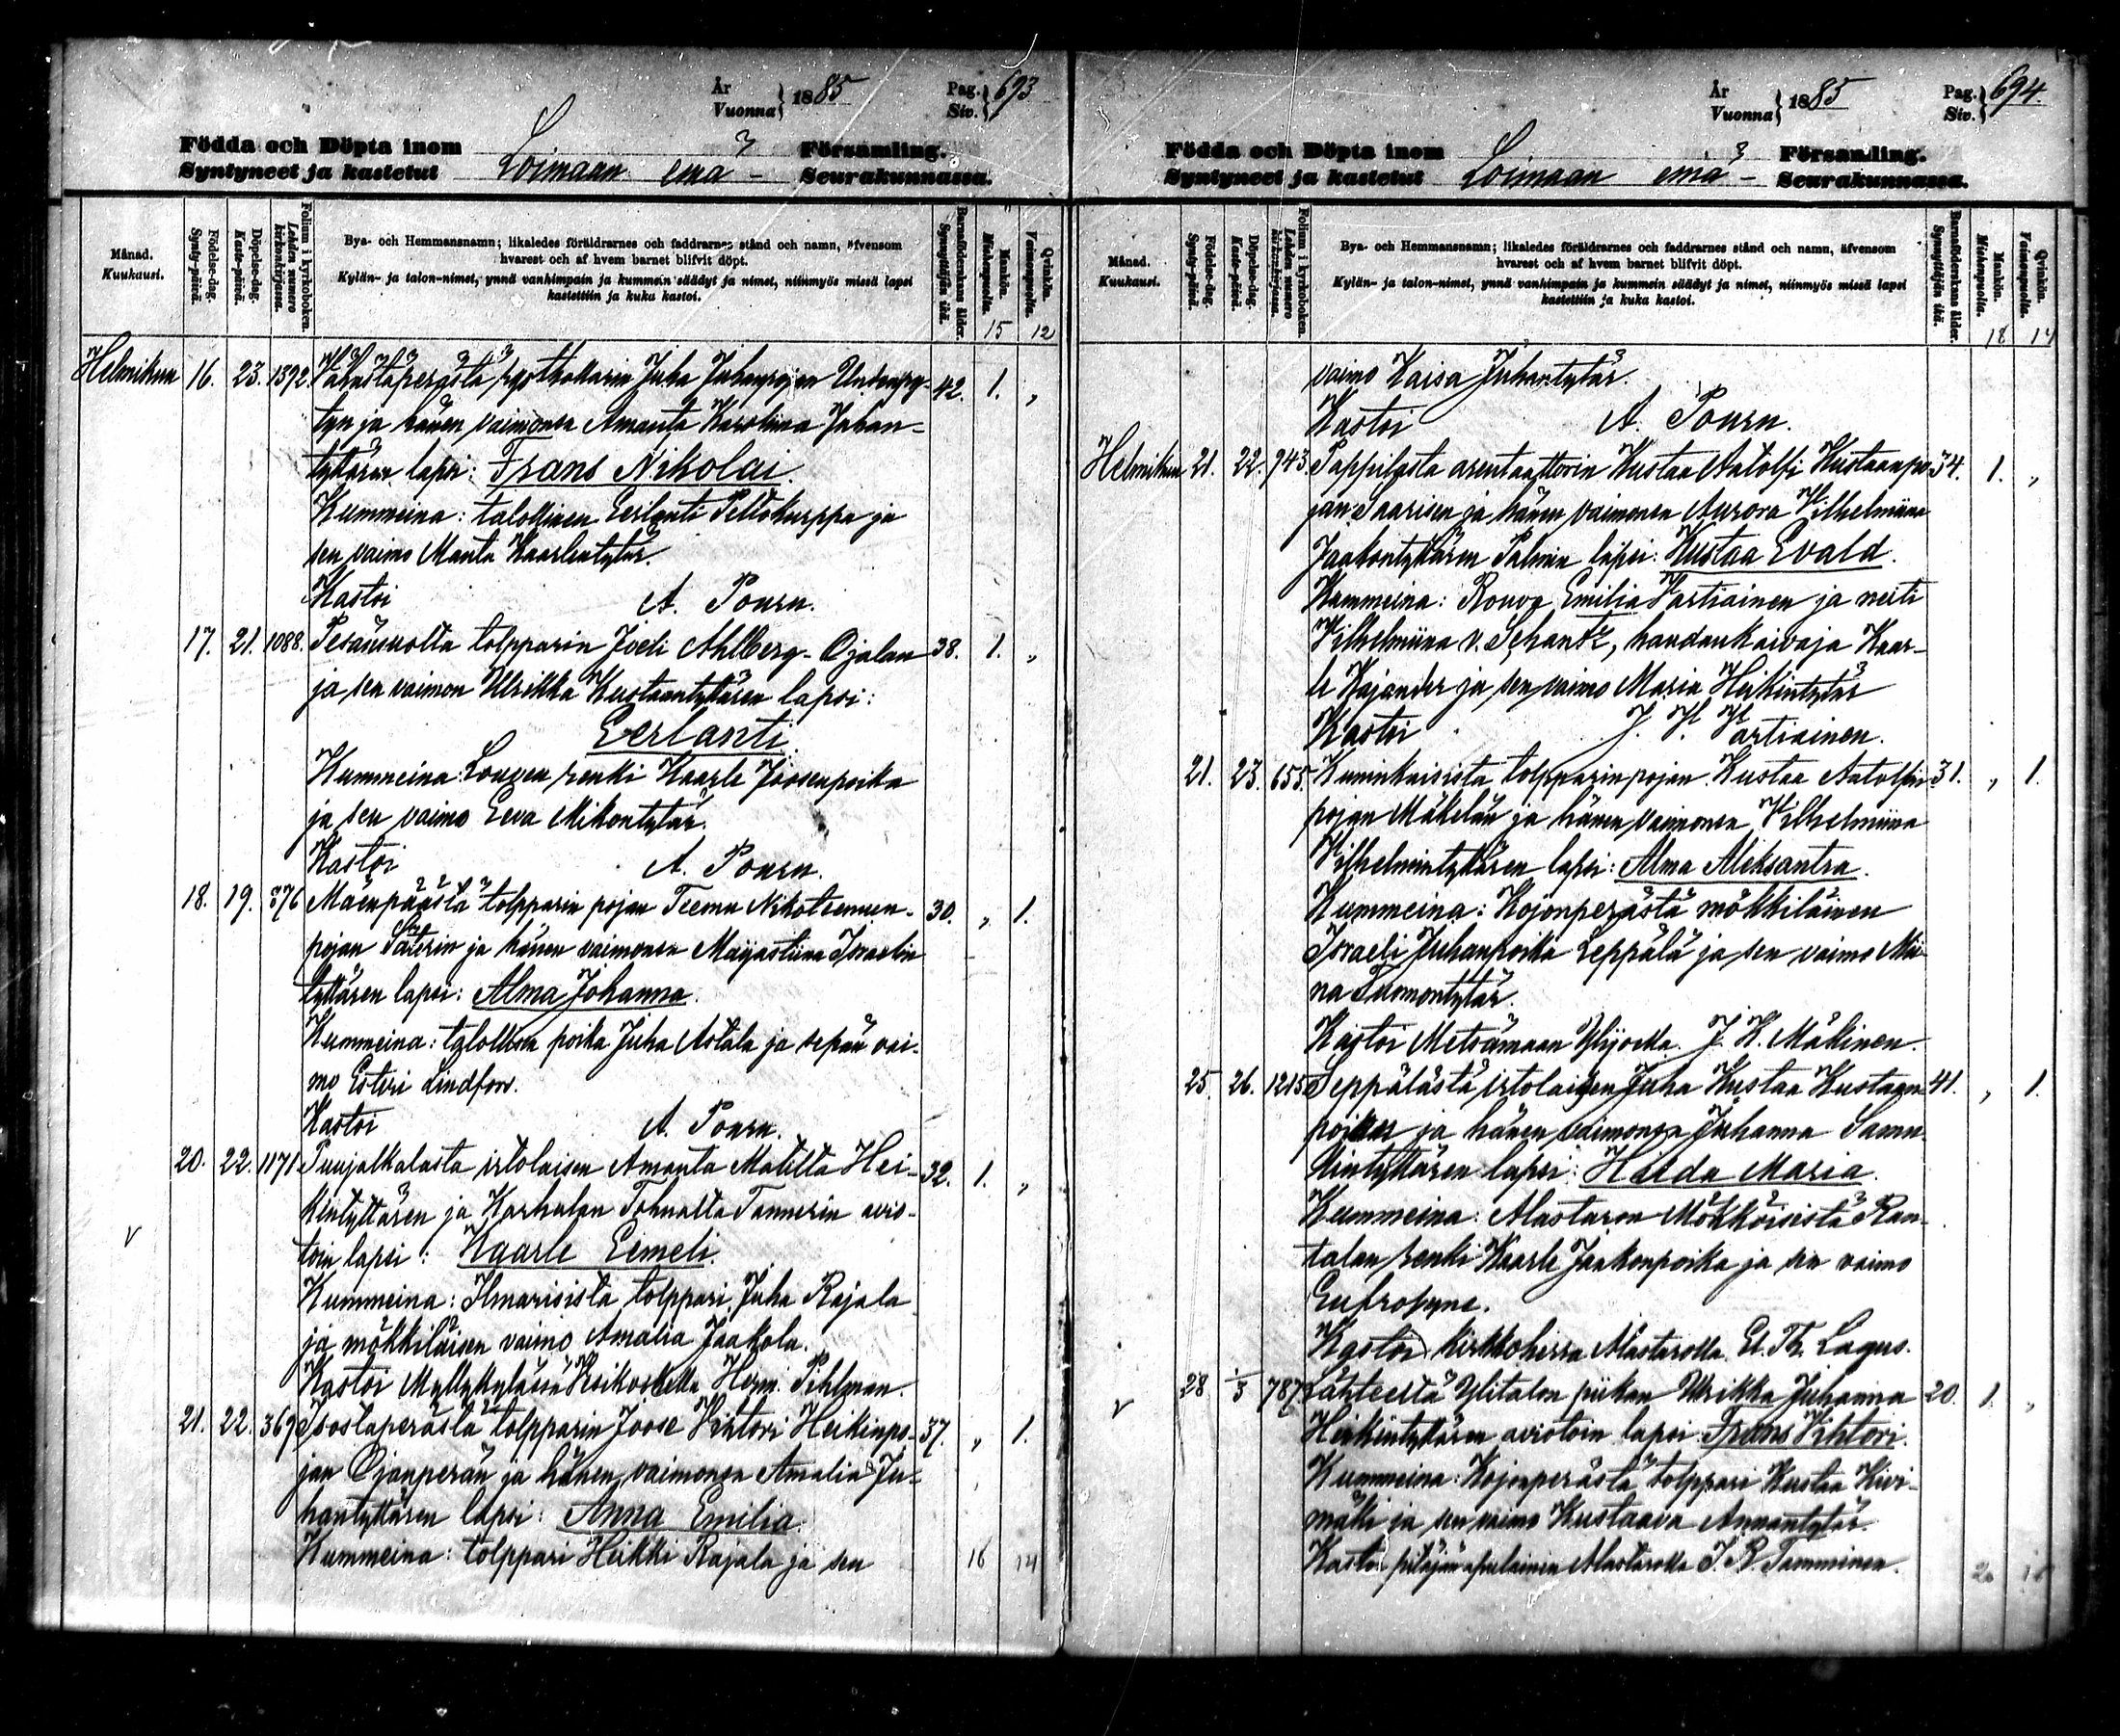 År
Vuonna } 1885
Pag.
Siv. } 693
Födda och Döpta inom
Syntyneet ja kastetut
Loimaan emä-
Församling.
Seurakunnassa.
Månad.
Kuukausi.
Födelse-dag.
Synty-päivä.
Döpelse-dag.
Kaste-päivä.
Folium i kyrkoboken.
Lehden numero kirkonkirjassa.
Bya- och Hemmansnamn; likaledes föräldrarnes och faddrarnes stånd och namn, äfvensom
hvarest och af hvem barnet blifvit döpt.
Kylän- ja talon-nimet, ynnä vanhimpain ja kummein säädyt ja nimet, niinmyös missä lapsi
kastettiin ja kuka kastoi.
Barnaföderskans ålder.
Synnyttäjän ikä.
Mankön.
Miehenpuolia.
Qvinkön.
Vaimonpuolia.
15 12
Helmikuu 16. 23. 1392. Vähästäperästä Juha Juhanpojan 42. 1. „
tyn ja hänen vaimonsa Amanta Karolina Juhan-
tyttären lapsi: Frans Nikolai.
Kummeina: talollinen Eerlanti Peltokurppa ja
sen vaimo Manta Kaarlentytär.
Kastoi A. Pourn.
17. 21. 1088. Pesänsuolta tolpparin Joeli Ahlberg-Ojalan 38. 1. „
ja sen vaimon Ulrikka Kustaantyttären lapsi:
Eerlanti.
Kummeina: renki Kaarle Joosenpoika
ja sen vaimo Eeva Mikontytär.
Kastoi A. Pourn.
18. 19. 376 Mäenpäästä tolpparin pojan Teemu Nikotemun- 30. „ 1.
pojan ja hänen vaimonsa Maijastiina Israelin
tyttären lapsi: Alma Johanna.
Kummeina: talollisen poika Juha Astala ja sepän vai-
mo Esteri Lindfors.
Kastoi A. Pourn.
20. 22. 1171 Puujalkalasta irtolaisen Amanta Matilta Hei- 32. 1. „
kintyttären ja Karhulan Tannerin avio-
toin lapsi: Kaarle Eemeli.
Kummeina: Ilmarisista tolppari Juha Rajala
ja mökkiläisen vaimo Amalia Jaakola.
Kastoi Myllykylässä Herm. Pihlman.
21. 22. 369 Isostaperästä tolpparin Joose Vihtori Heikinpo- 37. „ 1.
jan Ojanperän ja hänen vaimonsa Amalia Ju-
hantyttären lapsi: Anna Emilia.
Kummeina: tolppari Heikki Rajala ja sen
16 14
År
Vuonna } 1885
Pag.
Siv. } 694.
Födda och Döpta inom
Syntyneet ja kastetut
Loimaan emä-
Församling.
Seurakunnassa.
Månad.
Kuukausi.
Födelse-dag.
Synty-päivä.
Döpelse-dag.
Kaste-päivä.
Folium i kyrkoboken.
Lehden numero kirkonkirjassa.
Bya- och Hemmansnamn; likaledes föräldrarnes och faddrarnes stånd och namn, äfvensom
hvarest och af hvem barnet blifvit döpt.
Kylän- ja talon-nimet, ynnä vanhimpain ja kummein säädyt ja nimet, niinmyös missä lapsi
kastettiin ja kuka kastoi.
Barnaföderskans ålder.
Synnyttäjän ikä.
Mankön.
Miehenpuolia.
Qvinkön.
Vaimonpuolia.
18 14
vaimo Kaisa Juhantytär.
Kastoi A. Pourn.
Helmikuu 21. 22. 943. Pappilasta arentaattorin Kustaa Aatolfi Kustaanpo- 34. 1. „
jan Saarisen ja hänen vaimonsa Aurora Vilhelmiina
Jaakontyttären Palmin lapsi: Kustaa Evald.
Kummeina: Rouva Emilia Vartiainen ja neiti
Vilhelmiina v. Schantz, haudankaivaja Kaar-
le Kajander ja sen vaimo Maria Heikintytär
Kastoi J. H. Vartiainen.
21. 23. 655. Kuninkaisista tolpparinpojan Kustaa Aatolfin- 31. „ 1.
pojan Mäkelän ja hänen vaimonsa Vilhelmiina
Vilhelmintyttären lapsi: Alma Aleksantra.
Kummeina: Kojonperästä mökkiläinen
Israeli Juhanpoika Leppälä ja sen vaimo Mii-
na Tuomontytär.
Kastoi Metsämaan J. K. Mäkinen.
25. 26. 1215 Seppälästä irtolaisen Juha Kustaa Kustaan- 41. „ 1.
pojan ja hänen vaimonsa Juhanna Samu-
elintyttären lapsi: Hilda Maria.
Kummeina: Alastaron Mökköisistä Ran-
talan renki Kaarle Jaakonpoika ja sen vaimo
Eufrosyne.
Kastoi kirkkoherra Alastarolla El. Th. Lagus.
28 1/3 787. Lähteestä Ylitalon piikan Ulrikka Juhanna 20. 1. „
Heikintyttären aviotoin lapsi Frans Vihtori.
Kummeina: Kojonperästä tolppari Kustaa Kivi-
mäki ja sen vaimo Kustaava Annantytär.
Kastoi pitäjän apulainen Alastarolla J. R. Tamminen.
20